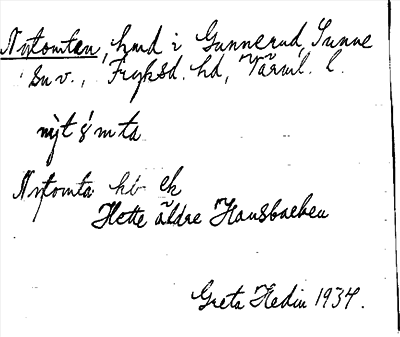 Nytomten, hmd i Gunnerud, Sunne
sn v., Fryksd. hd, Värml. l.
Nytomta hb ek
Hette äldre Hansbacken
Greta Hedin 1934.